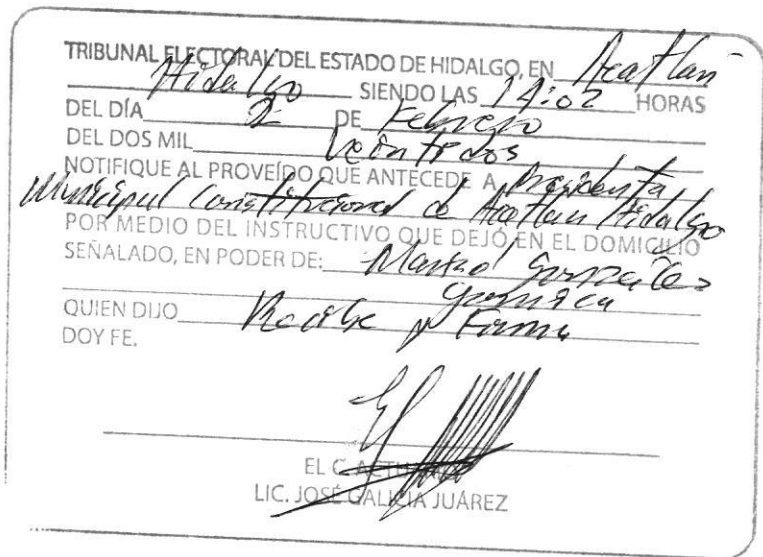 TRIBUNAL ELECTORAL DEL ESTADO DE HIDALGO, EN Acatlán
Hidalgo SIENDO LAS 14:02 HORAS
DEL DÍA 2 DE Febrero
DEL DOS MIL Veintidos
NOTIFIQUE AL PROVEÍDO QUE ANTECEDE A Presidenta
Municipal Constitucional de Acatlan Hidalgo
POR MEDIO DEL INSTRUCTIVO QUE DEJÓ EN EL DOMICILIO
SEÑALADO, EN PODER DE: Marisol González
QUIEN DIJO Recibe y Firma
DOY FE.
EL C. ACTUARIO
LIC. JOSÉ GALICIA JUÁREZ